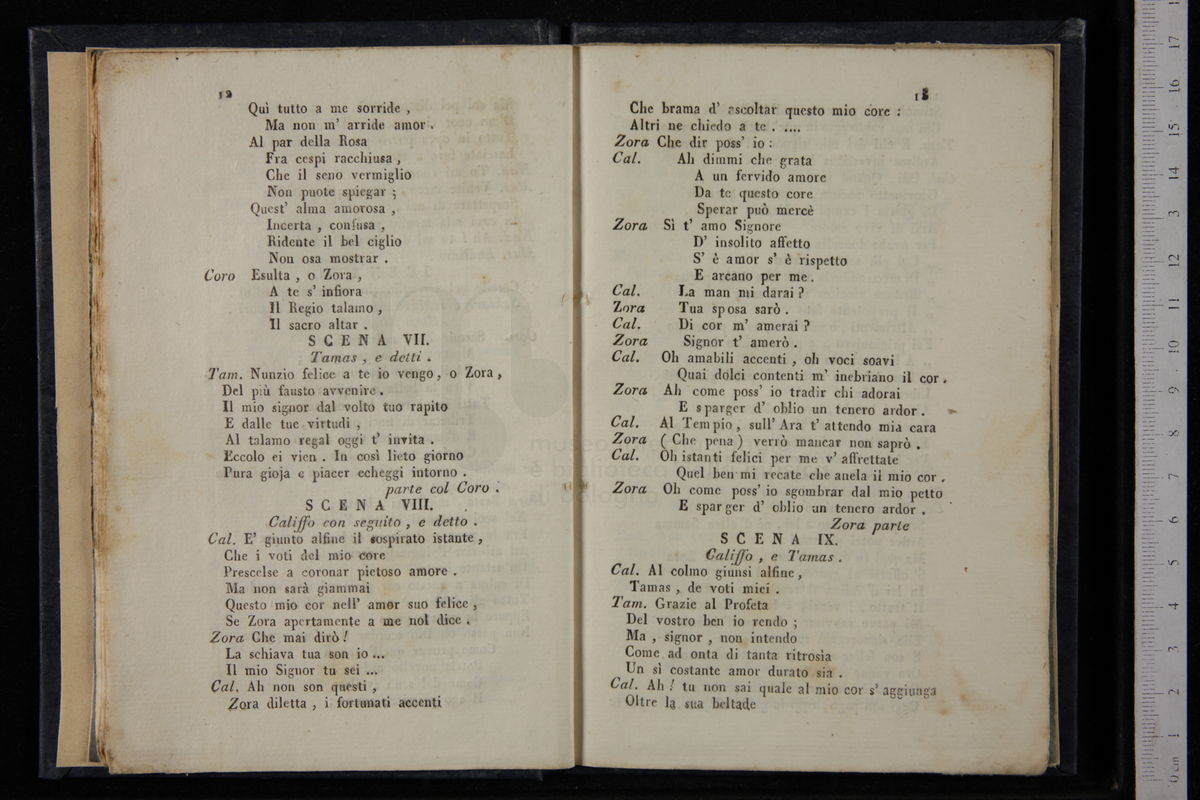 12
Quì tutto a me sorride ,
Ma non m' arride amor .
Al par della Rosa
Fra cespi racchiusa ,
Che il seno vermiglio
Non puote spiegar ;
Quest' alma amorosa ,
Incerta , confusa ,
Ridente il bel ciglio
Non osa mostrar .
Coro Esulta , o Zora ,
A te s' infiora
Il Regio talamo ,
Il sacro altar .
SCENA VII.
Tamas , e detti .
Tam. Nunzio felice a te io vengo , o Zora ,
Del più fausto avvenire .
Il mio signor dal volto tuo rapito
E dalle tue virtudi ,
Al talamo regal oggi t' invita .
Eccolo ei vien . In così lieto giorno
Pura gioja e piacer echeggi intorno .
parte col Coro .
SCENA VIII.
Califfo con seguito , e detto .
Cal. E' giunto alfine il sospirato istante ,
Che i voti del mio core
Prescelse a coronar pietoso amore .
Ma non sarà giammai
Questo mio cor nell' amor suo felice ,
Se Zora apertamente a me nol dice .
Zora Che mai dirò !
La schiava tua son io ...
Il mio Signor tu sei ...
Cal. Ah non son questi ,
Zora diletta , i fortunati accenti
13
Che brama d' ascoltar questo mio core :
Altri ne chiedo a te . ....
Zora Che dir poss' io :
Cal. Ah dimmi che grata
A un fervido amore
Da te questo core
Sperar può mercè
Zora Sì t' amo Signore
D' insolito affetto
S' è amor s' è rispetto
E arcano per me .
Cal. La man mi darai ?
Zora Tua sposa sarò .
Cal. Di cor m' amerai ?
Zora Signor t' amerò .
Cal. Oh amabili accenti , oh voci soavi
Quai dolci contenti m' inebriano il cor .
Zora Ah come poss' io tradir chi adorai
E sparger d' oblio un tenero ardor .
Cal. Al Tempio , sull' Ara t' attendo mia cara
Zora ( Che pena ) verrò mancar non saprò .
Cal. Oh istanti felici per me v' affrettate
Quel ben mi recate che anela il mio cor .
Zora Oh come poss' io sgombrar dal mio petto
E sparger d' oblio un tenero ardor .
Zora parte
SCENA IX.
Califfo , e Tamas .
Cal. Al colmo giunsi alfine ,
Tamas , de voti miei .
Tam. Grazie al Profeta
Del vostro ben io rendo ;
Ma , signor , non intendo
Come ad onta di tanta ritrosia
Un sì costante amor durato sia .
Cal. Ah ! tu non sai quale al mio cor s' aggiunga
Oltre la sua beltade